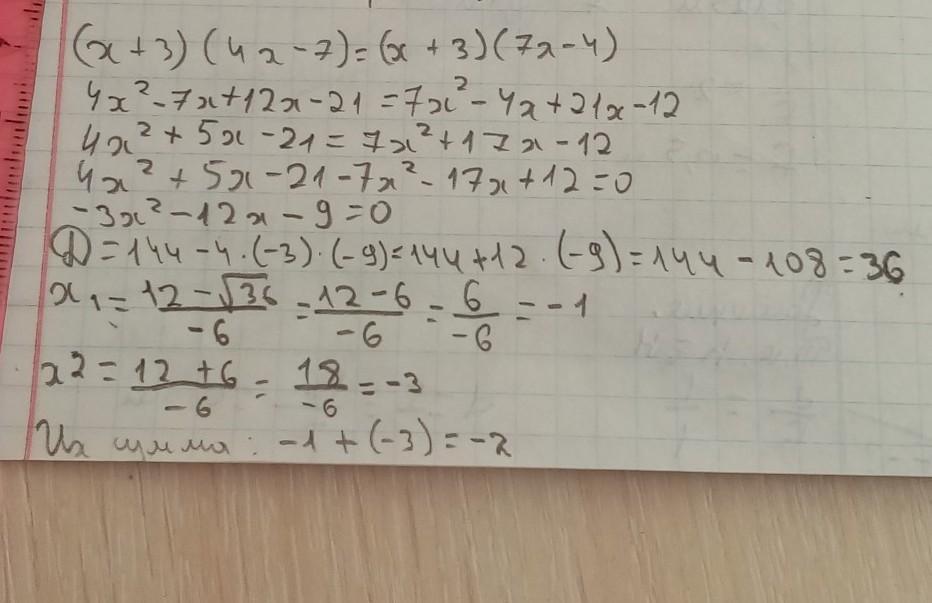 (x + 3) (4x - 7) = (x + 3) (7x - 4)
4x² - 7x + 12x - 21 = 7x² - 4x + 21x - 12
4x² + 5x - 21 = 7x² + 17x - 12
4x² + 5x - 21 - 7x² - 17x + 12 = 0
-3x² - 12x - 9 = 0
D = 144 - 4 · (-3) · (-9) = 144 + 12 · (-9) = 144 - 108 = 36
x₁ = (12 - √36)/(-6) = (12 - 6)/(-6) = 6/(-6) = -1
x2 = (12 + 6)/(-6) = 18/(-6) = -3
Их сумма: -1 + (-3) = -2